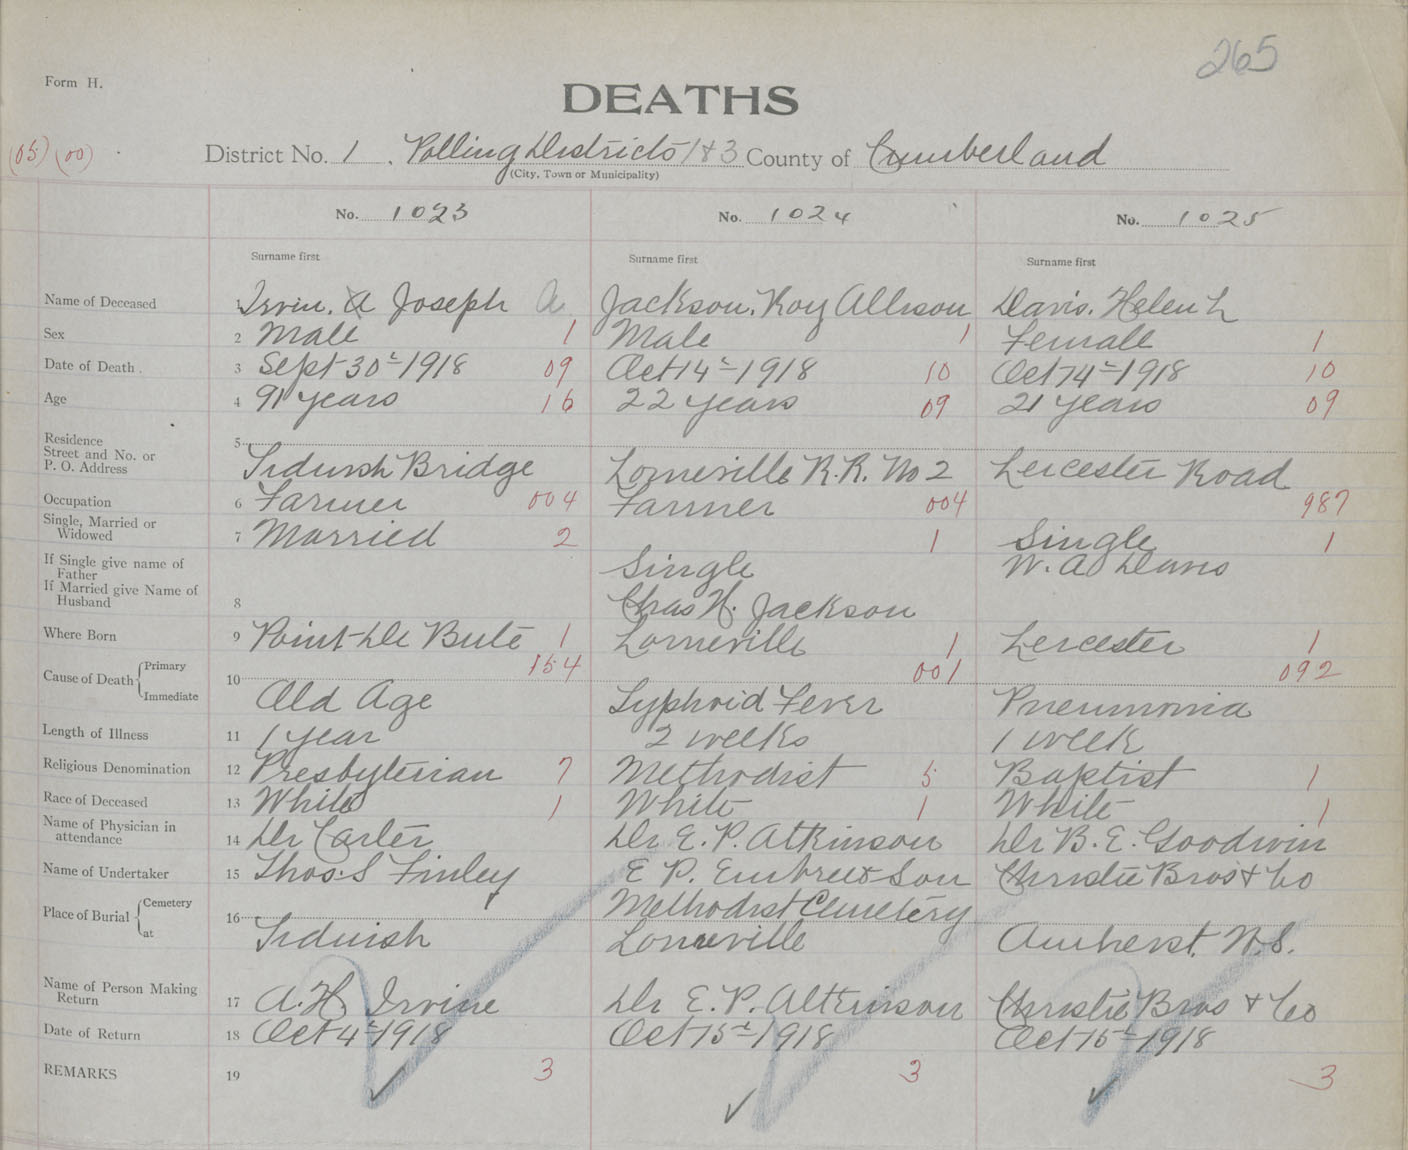 265
Form H.
DEATHS
(05) (00) District No. 1. Polling Districts 1 & 3 County of Cumberland
(City, Town or Municipality)
No. 1023 No. 1024 No. 1025
Surname first Surname first Surname first
Name of Deceased 1 Irvin. Joseph A Jackson, Roy Allison Davis. Helen L
Sex 2 Male 1 Male 1 Female 1
Date of Death. 3 Sept 30th 1918 09 Oct 14th 1918 10 Oct 14th 1918 10
Age 4 91 years 16 22 years 09 21 years 09
Residence 5
Street and No. or
P. O. Address Tidnish Bridge Lorneville R.R. No 2 Leicester Road
Occupation 6 Farmer 004 Farmer 004 987
Single, Married or
Widowed 7 Married 2 1 Single 1
If Single give name of
Father Single W. A. Davis
If Married give Name of
Husband 8 Chas H. Jackson
Where Born 9 Point De Bute 1 Lorneville 1 Leicester 1
154 001 092
Cause of Death { Primary
Immediate 10 Old Age Typhoid Fever Pneumonia
Length of Illness 11 1 year 2 weeks 1 week
Religious Denomination 12 Presbyterian 7 Methodist 5 Baptist 1
Race of Deceased 13 White 1 White 1 White 1
Name of Physician in
attendance 14 Dr Carter Dr E. P. Atkinson Dr B. E. Goodwin
Name of Undertaker 15 Thos. S Finley E P. Embree & Son Christie Bros & Co
Place of Burial { Cemetery 16 Methodist Cemetery
at Tidnish Lorneville Amherst. N.S.
Name of Person Making
Return 17 A. H. Irvine Dr E. P. Atkinson Christie Bros & Co
Date of Return 18 Oct 4th 1918 Oct 15th 1918 Oct 15th 1918
REMARKS 19 3 3 3